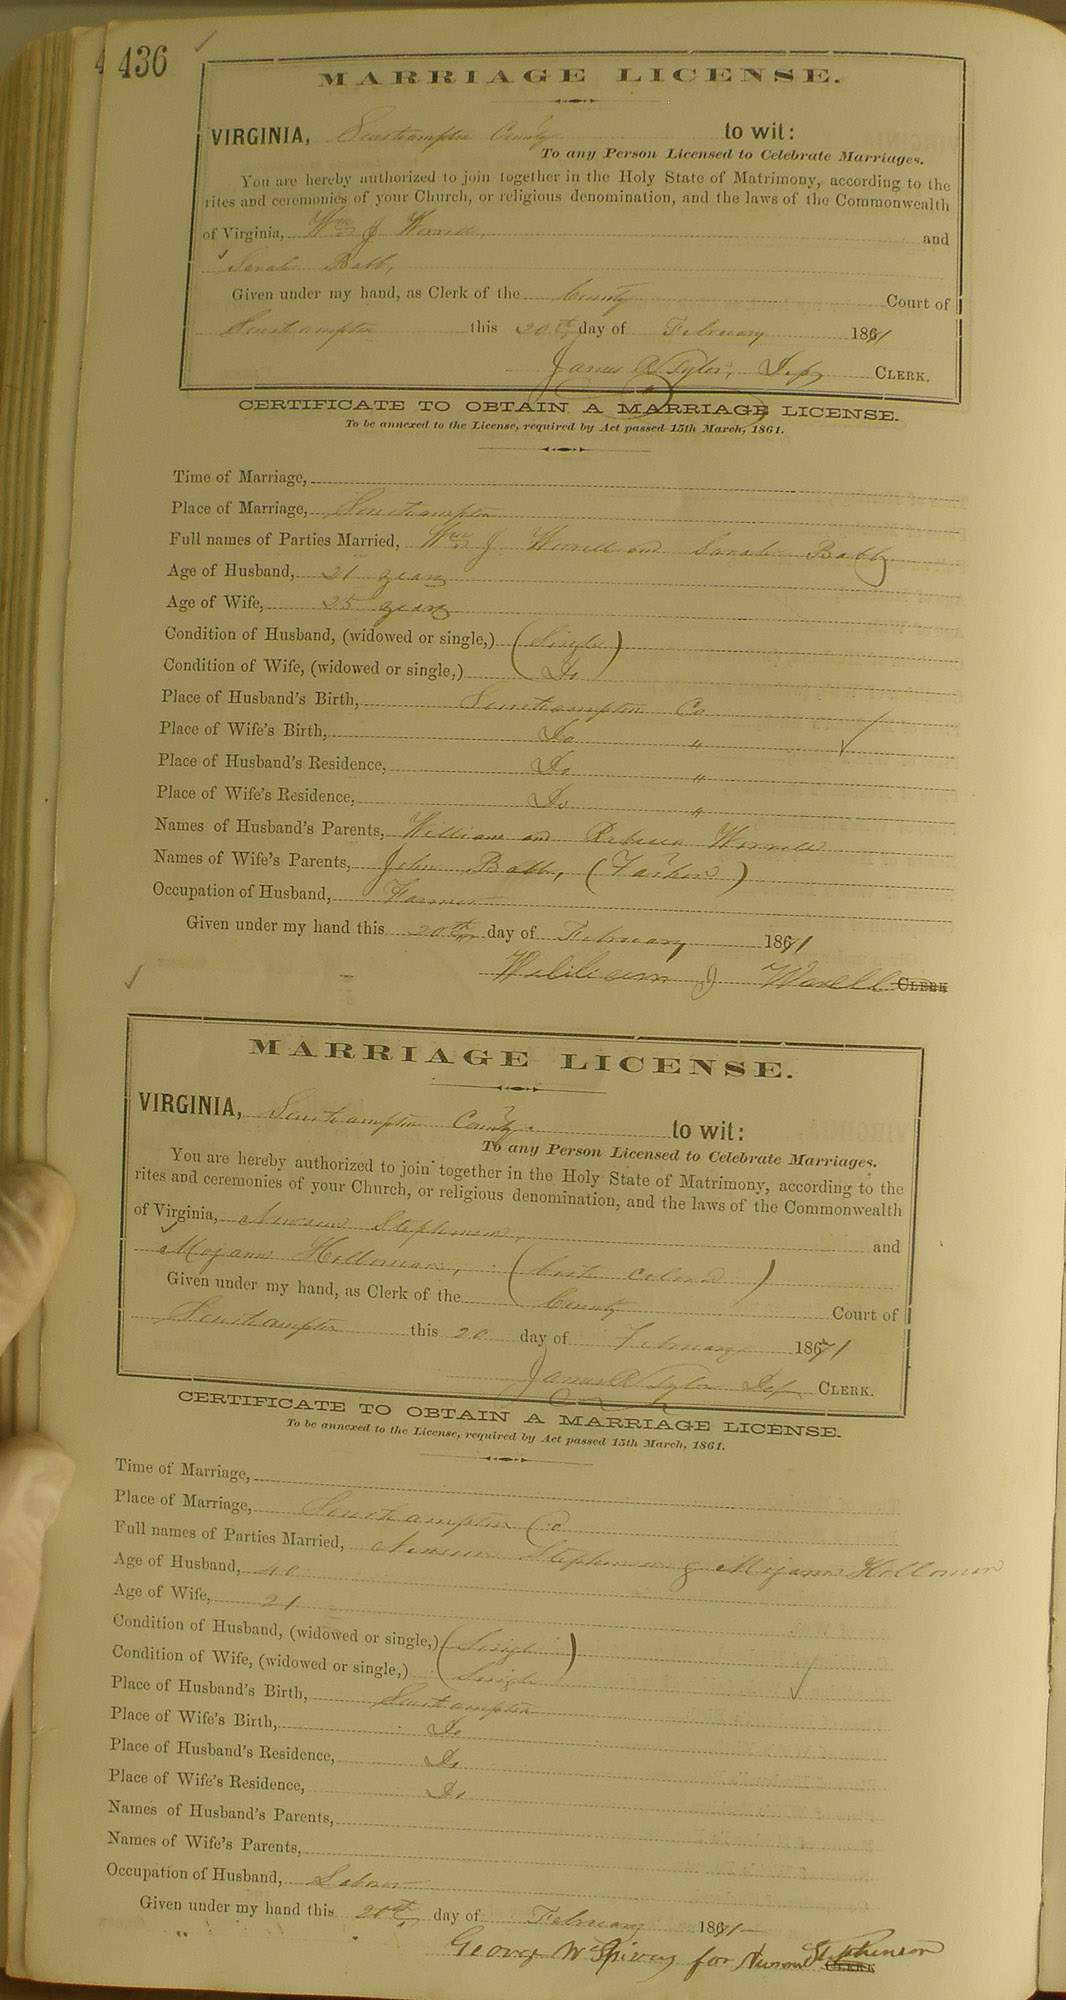 436
MARRIAGE LICENSE.
VIRGINIA, Southampton County to wit:
To any Person Licensed to Celebrate Marriages.
You are hereby authorized to join together in the Holy State of Matrimony, according to the
rites and ceremonies of your Church, or religious denomination, and the laws of the Commonwealth
of Virginia, Wm J Worrell, and
Sarah Babb,
Given under my hand, as Clerk of the County Court of
Southampton this 20th day of February 1871
James R Tyler, Dep CLERK.
CERTIFICATE TO OBTAIN A MARRIAGE LICENSE.
To be annexed to the License, required by Act passed 15th March, 1861.
Time of Marriage,
Place of Marriage, Southampton
Full names of Parties Married, Wm J Worrell and Sarah Babb
Age of Husband, 21 years
Age of Wife, 25 years
Condition of Husband, (widowed or single,) (Single)
Condition of Wife, (widowed or single,) Do
Place of Husband's Birth, Southampton Co
Place of Wife's Birth, Do "
Place of Husband's Residence, Do "
Place of Wife's Residence, Do "
Names of Husband's Parents, William and Rebecca Worrell
Names of Wife's Parents, John Babb, (Father)
Occupation of Husband, Farmer
Given under my hand this 20th day of February 1871
William J Worell CLERK
MARRIAGE LICENSE.
VIRGINIA, Southampton County. to wit:
To any Person Licensed to Celebrate Marriages.
You are hereby authorized to join together in the Holy State of Matrimony, according to the
rites and ceremonies of your Church, or religious denomination, and the laws of the Commonwealth
of Virginia, Newsom Stephenson, and
Mojanna Holloman, (both colored)
Given under my hand, as Clerk of the County Court of
Southampton this 20 day of February 1871
James R Tyler Dep CLERK.
CERTIFICATE TO OBTAIN A MARRIAGE LICENSE.
To be annexed to the License, required by Act passed 15th March, 1861.
Time of Marriage,
Place of Marriage, Southampton Co
Full names of Parties Married, Newsom Stephenson & Mojanna Holloman
Age of Husband, 40
Age of Wife, 21
Condition of Husband, (widowed or single,) (Single)
Condition of Wife, (widowed or single,) Single
Place of Husband's Birth, Southampton
Place of Wife's Birth, Do
Place of Husband's Residence, Do
Place of Wife's Residence, Do
Names of Husband's Parents,
Names of Wife's Parents,
Occupation of Husband, Laborer
Given under my hand this 20th day of February 1871
George W Spivey for Newsom Stephenson CLERK